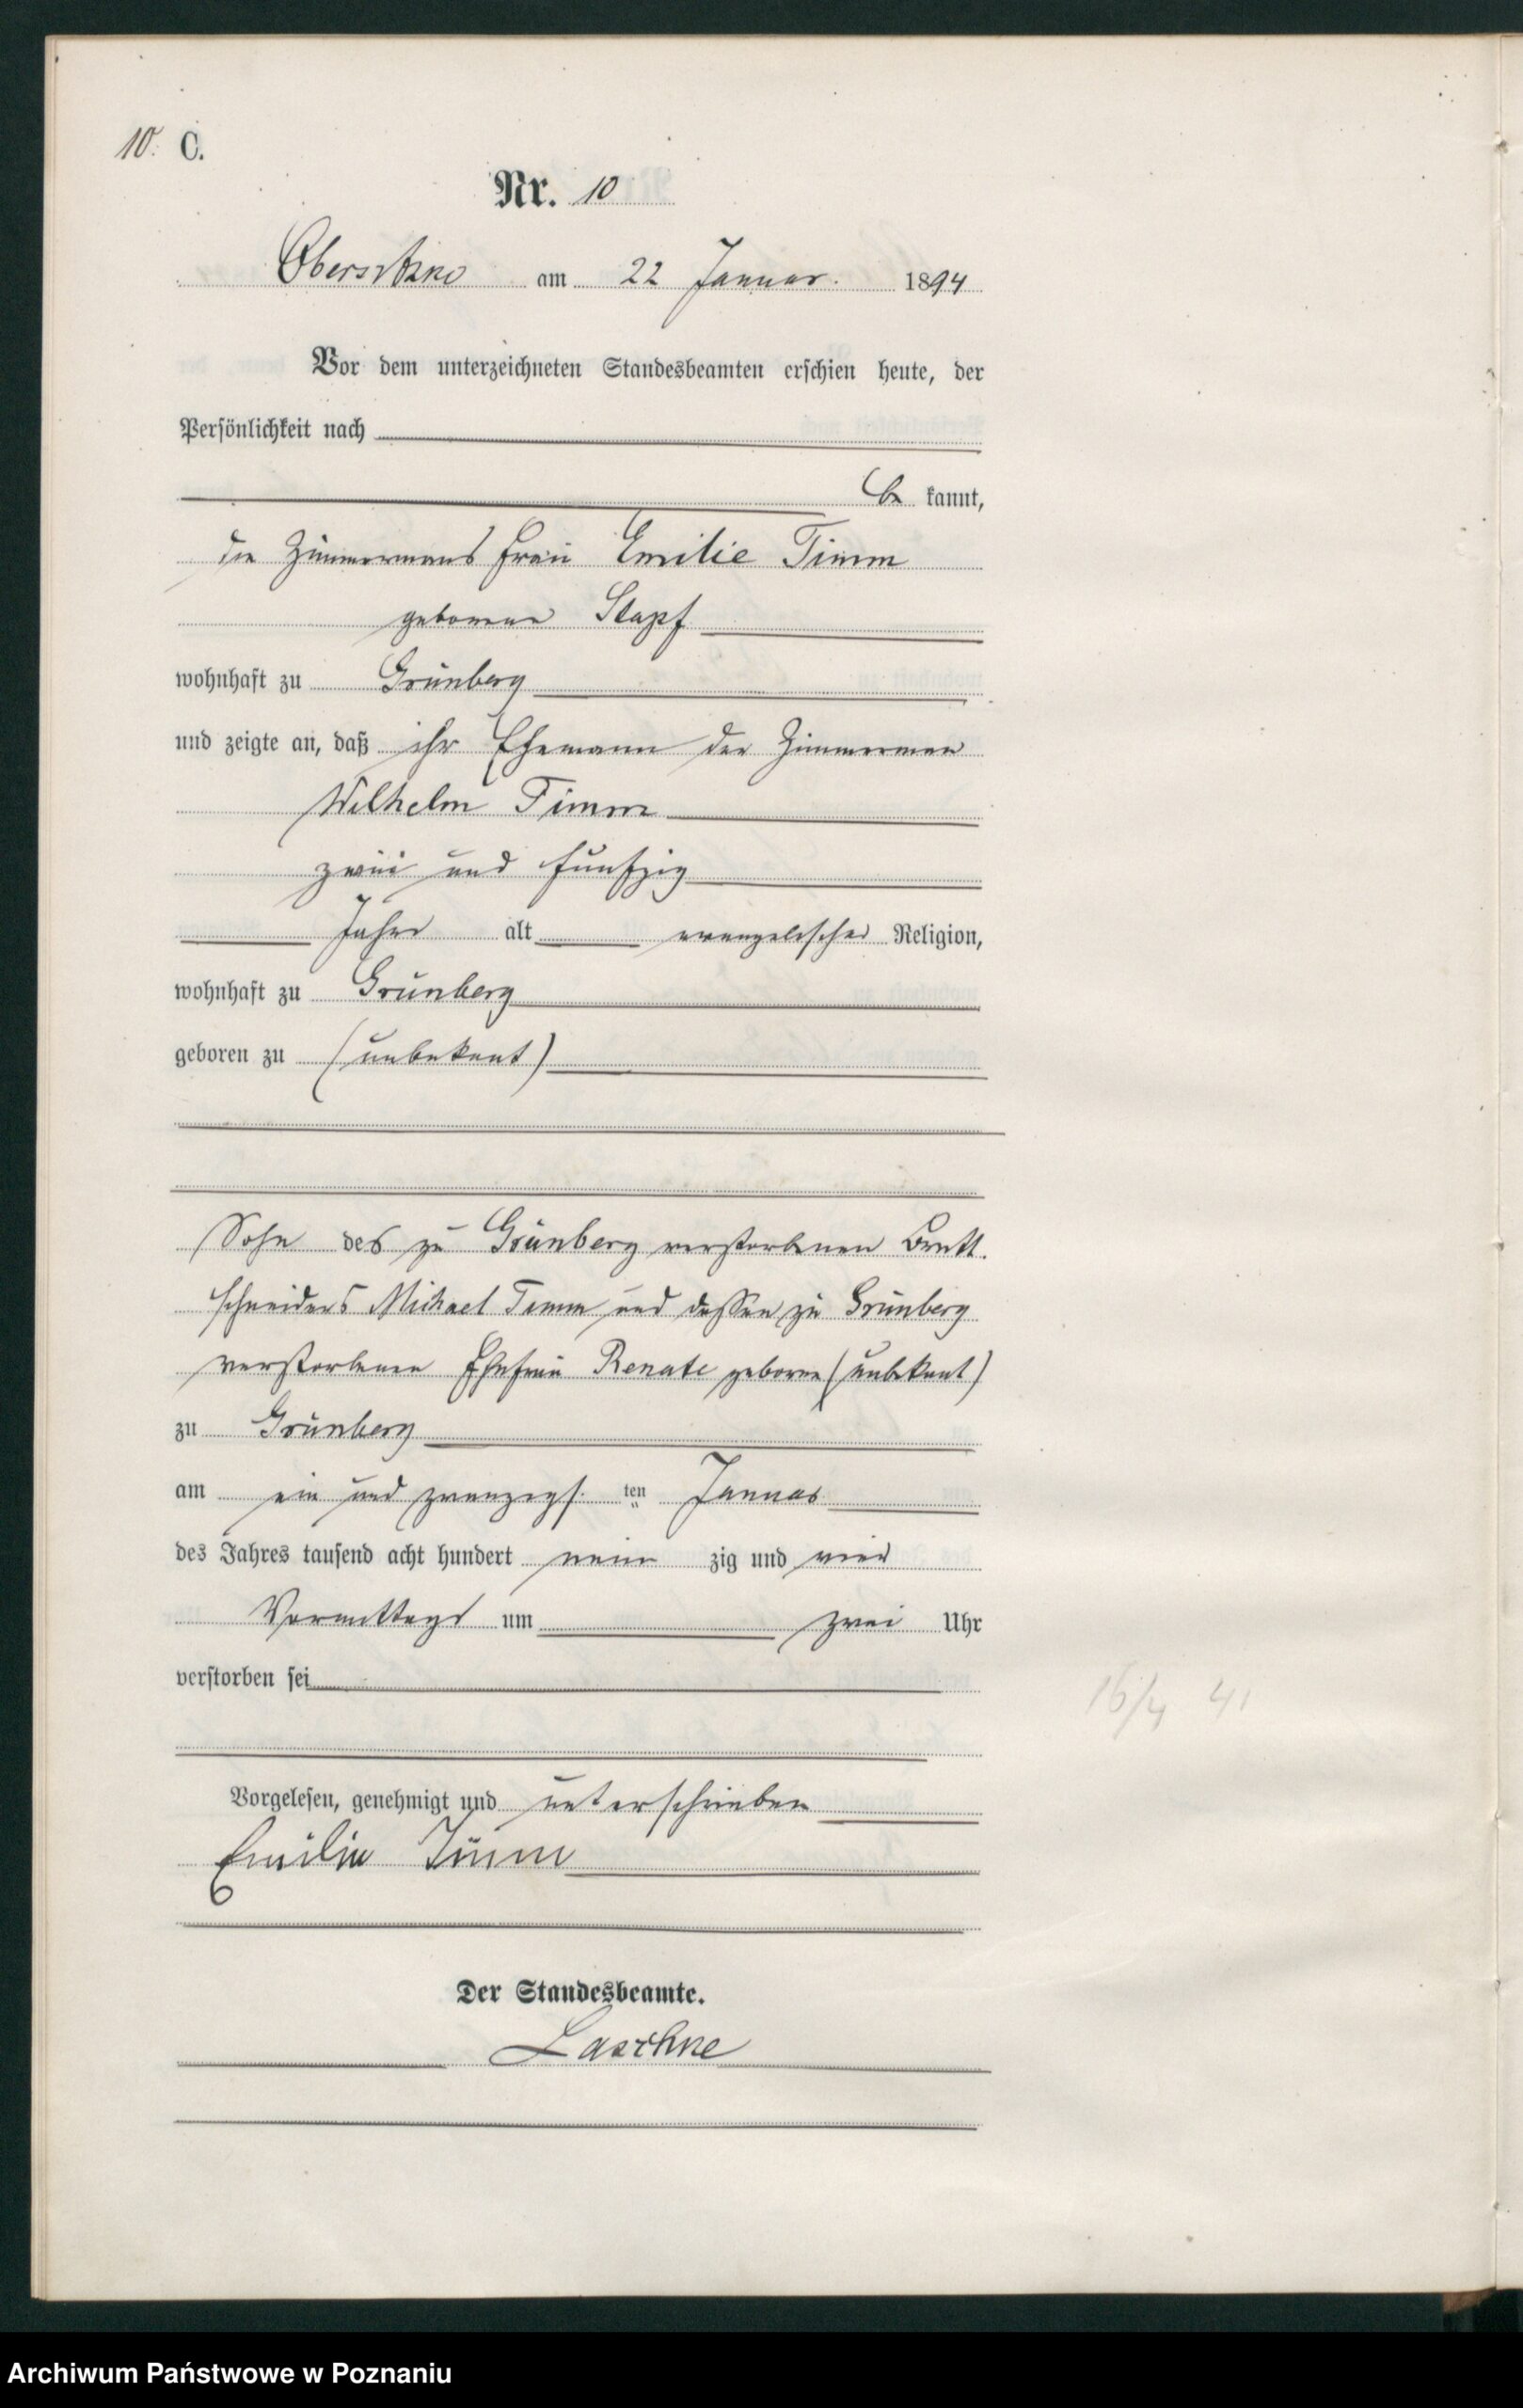 10. C.
Nr. 10
Obersitzko am 22 Januar. 1894
Vor dem unterzeichneten Standesbeamten erschien heute, der
Persönlichkeit nach
be kannt,
die Zimmermans Frau Emilie Timm
geborene Stapf
wohnhaft zu Grünberg
und zeigte an, daß ihr Ehemann der Zimmerman
Wilhelm Timm
zwei und fünfzig
Jahre alt evangelischer Religion,
wohnhaft zu Grünberg
geboren zu (unbekant)
Sohn des zu Grünberg verstorbenen Brett
schneiders Michael Timm und dessen zu Grünberg
verstorbenen Ehefrau Renate geborne (unbekant)
zu Grünberg
am ein und zwanzigs ten Januar
des Jahres tausend acht hundert neun zig und vier
Vormittags um zwei Uhr
verstorben sei
Vorgelesen, genehmigt und unterschrieben
Emilie Timm
Der Standesbeamte.
Laschke
16/4 41
Archiwum Państwowe w Poznaniu